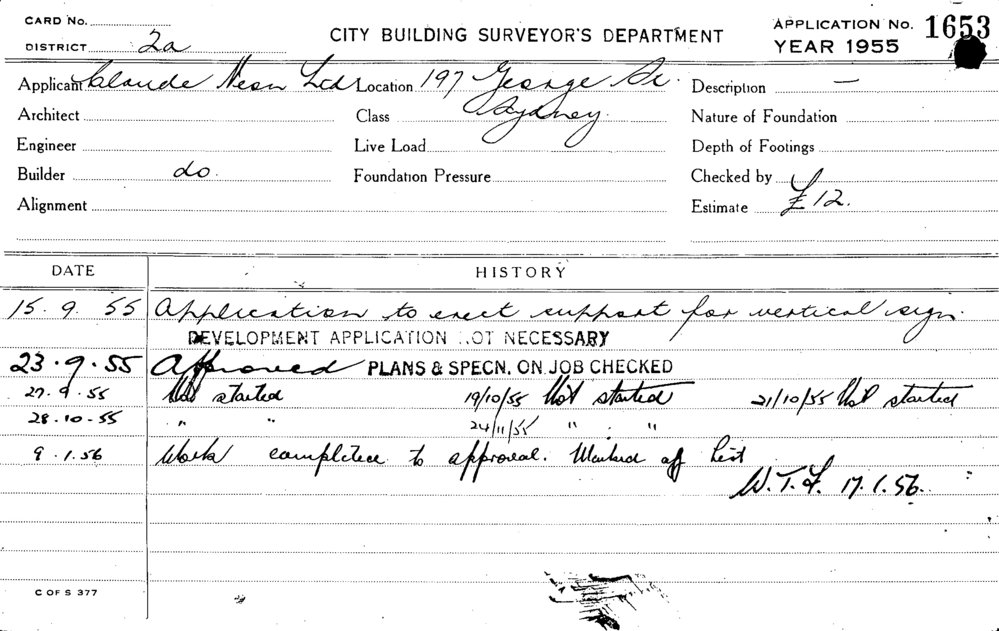 CARD No.
DISTRICT 2a
CITY BUILDING SURVEYOR'S DEPARTMENT
APPLICATION No. 1653
YEAR 1955
Applicant Claude Neon Ltd Location 197 George St. Description —
Architect Class Sydney. Nature of Foundation
Engineer Live Load Depth of Footings
Builder do. Foundation Pressure Checked by
Alignment Estimate £12.
DATE HISTORY
15.9.55 Application to erect support for vertical sign.
DEVELOPMENT APPLICATION NOT NECESSARY
23.9.55 Approved PLANS & SPECN. ON JOB CHECKED
27.9.55 Not started 19/10/55 Not started 21/10/55 Not started
28.10.55 " " 24/11/55 " "
9.1.56 Work completed to approval. Marked off List
W.T.F. 17.1.56.
C OF S 377